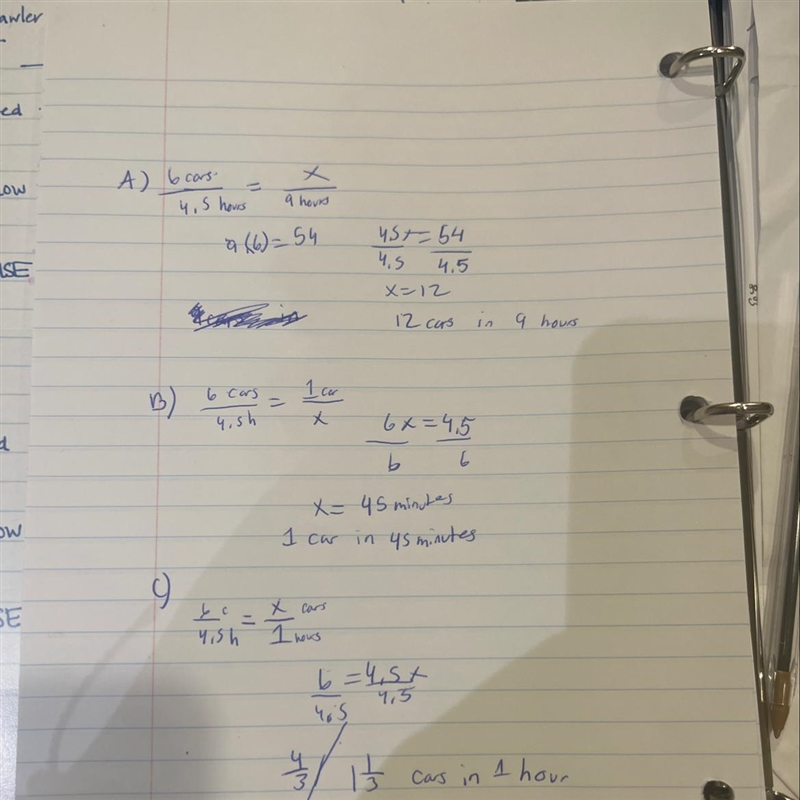 awler
ed
low
ISE
d
ow
SE
A) 6 cars / 4.5 hours = x / 9 hours
9(6) = 54
45x / 4.5 = 54 / 4.5
x = 12
12 cars in 9 hours
B) 6 cars / 4.5h = 1 car / x
6x / 6 = 4.5 / 6
x = 45 minutes
1 car in 45 minutes
C)
6 c / 4.5h = x cars / 1 hours
6 / 4.5 = 4.5x / 4.5
4/3 / 1 1/3 cars in 1 hour